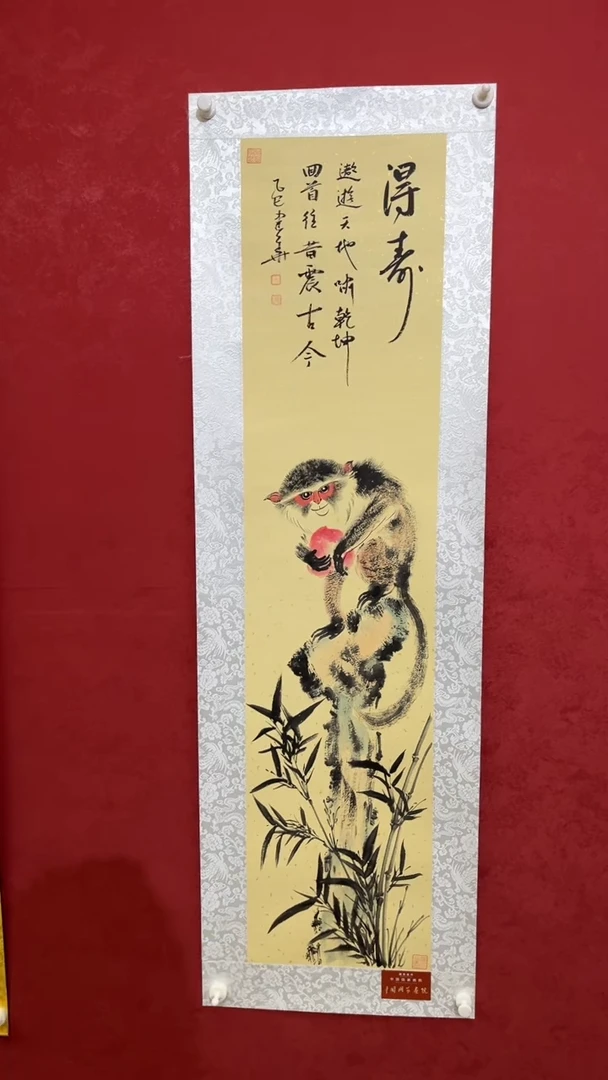 得寿
遨遊天地啸乾坤
回首往昔震古今
乙巳